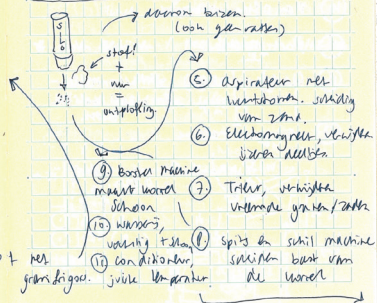 SILO
daarom buizen.
(ook geen ratten)
stof!
+
vuur
=
ontploffing.
5. aspirateur met
luchtstroom. scheiding
van zand.
6. Electromagneet, verwijdert
ijzeren deeltjes.
7. Trieur, verwijdert
vreemde granen/zaden
8. spits en schil machine
scheiden bast van
de korrel
9. Borstel machine
maakt korrel
schoon
10. wasserij,
vochtig +
11. conditioneur,
juiste temperatuur.
met